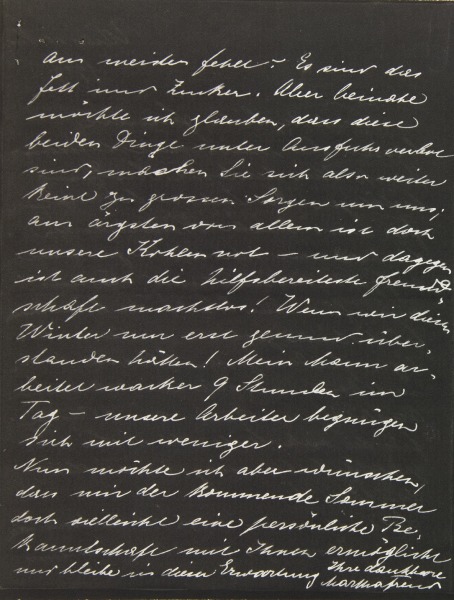 am meisten fehlt? Es sind das
Fett und Zucker. Aber beinahe
möchte ich glauben, dass diese
beiden Dinge unter Ausfuhrverbot
sind, machen Sie sich also weiter
keine zu grossen Sorgen um uns,
am ärgsten von allem ist doch
unsere Kohlennot – und dagegen
ist auch die hilfsbereiteste Freund-
schaft machtlos! Wenn wir diesen
Winter nur erst gesund über-
standen hätten! Mein Mann ar-
beitet wacker 9 Stunden im
Tag – unsere Arbeiter begnügen
sich mit weniger.
Nun möchte ich aber wünschen,
dass mir der kommende Sommer
doch vielleicht eine persönliche Be-
kanntschaft mit Ihnen ermöglicht
und bleibe in dieser Erwartung Ihre dankbare
Martha Freud